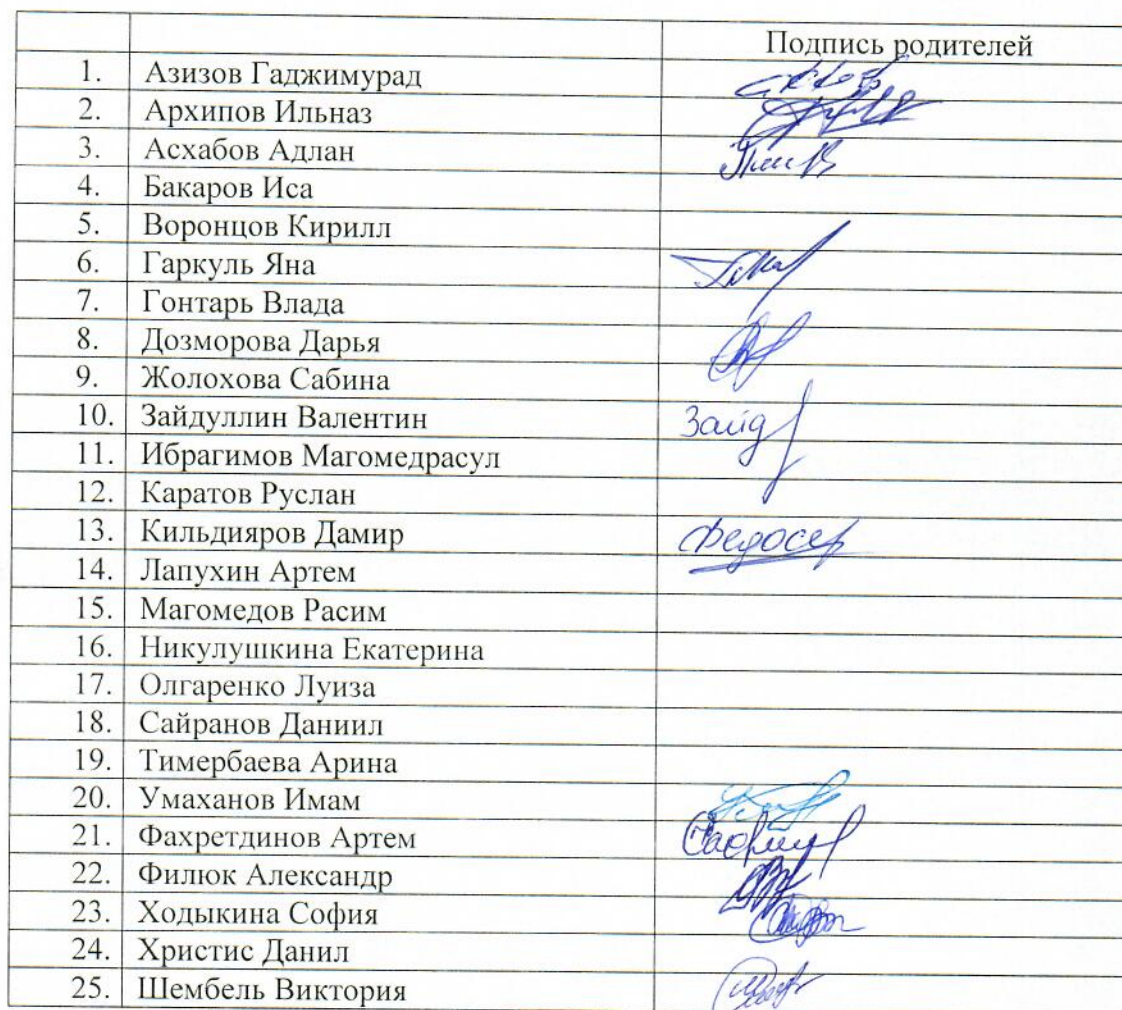 Подпись родителей
1. Азизов Гаджимурад
2. Архипов Ильназ
3. Асхабов Адлан
4. Бакаров Иса
5. Воронцов Кирилл
6. Гаркуль Яна
7. Гонтарь Влада
8. Дозморова Дарья
9. Жолохова Сабина
10. Зайдуллин Валентин Зайд
11. Ибрагимов Магомедрасул
12. Каратов Руслан
13. Кильдияров Дамир
14. Лапухин Артем
15. Магомедов Расим
16. Никулушкина Екатерина
17. Олгаренко Луиза
18. Сайранов Даниил
19. Тимербаева Арина
20. Умаханов Имам
21. Фахретдинов Артем
22. Филюк Александр
23. Ходыкина София
24. Христис Данил
25. Шембель Виктория